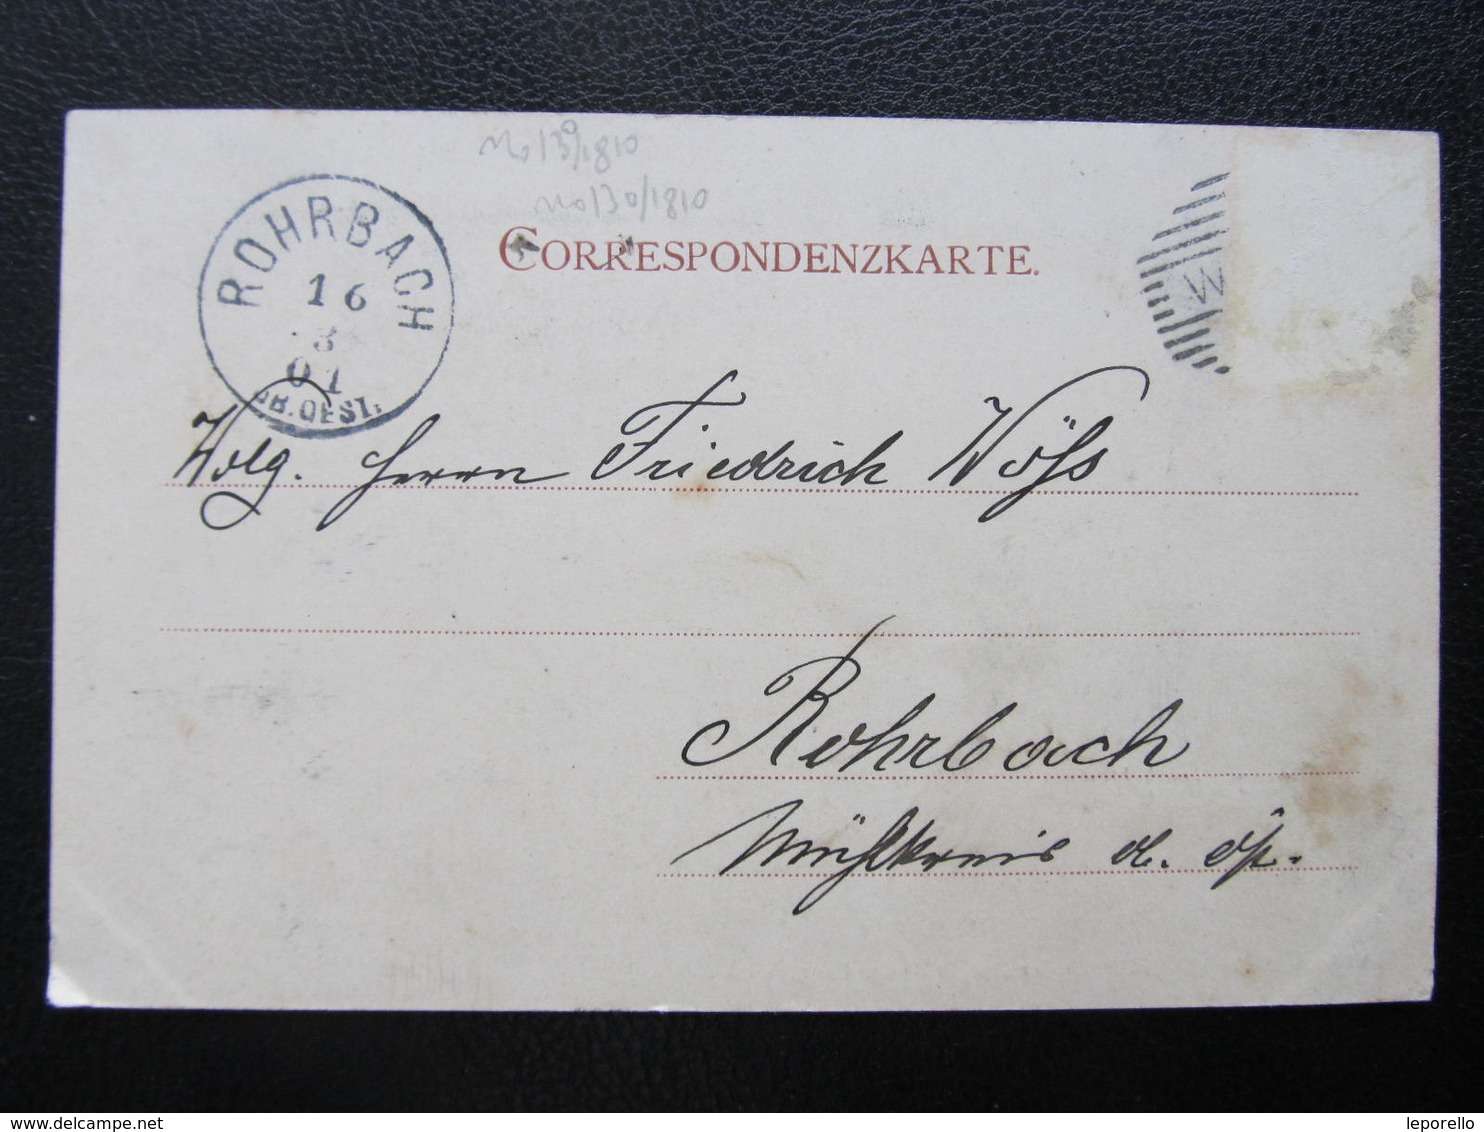 No 139/1810
No 130/1810
ROHRBACH
16
3
01
OB.OEST.
CORRESPONDENZKARTE.
W
Wolg. Herrn Friedrich Wöss
Rohrbach
Mühlkreis o. öst.
www.delcampe.net
leporello